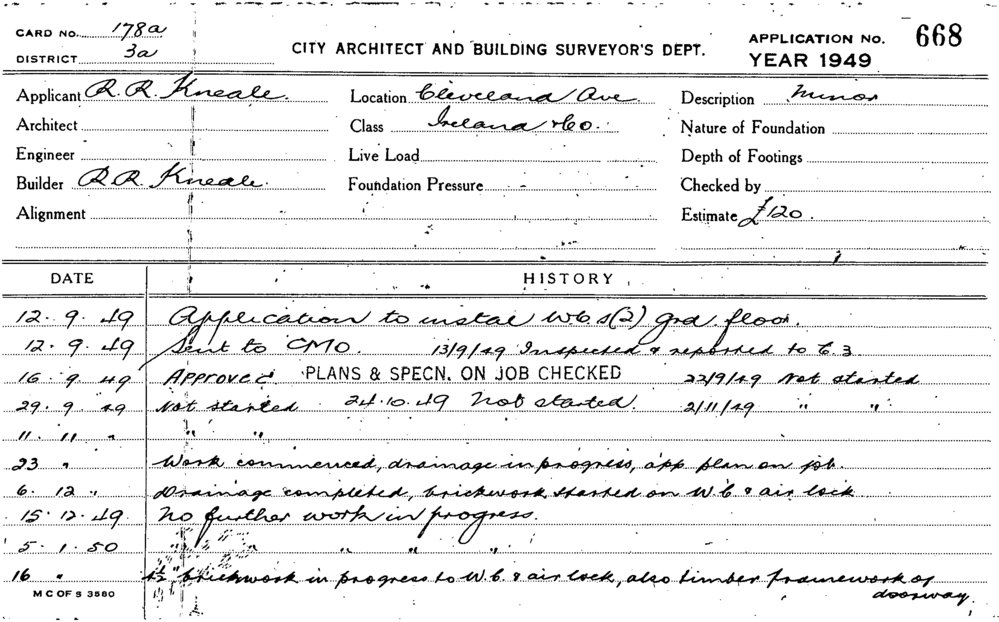 CARD NO. 178a
DISTRICT 3a
CITY ARCHITECT AND BUILDING SURVEYOR'S DEPT.
APPLICATION NO. 668
YEAR 1949
Applicant R. R. Kneale. Location Cleveland Ave Description Minor
Architect Class Ireland & Co. Nature of Foundation
Engineer Live Load Depth of Footings
Builder R. R. Kneale. Foundation Pressure Checked by
Alignment Estimate £120.
DATE HISTORY
12. 9. 49 Application to instal W.C.s (2) grd. floor.
12. 9. 49 Sent to CMO. 13/9/49 Inspected & reported to E.3
16. 9. 49 Approved PLANS & SPECN. ON JOB CHECKED 22/9/49 Not started
29. 9. 49 Not started 24.10.49 Not started. 2/11/49 " "
11. 11. " " "
23 " Work commenced, drainage in progress, app plan on job.
6. 12 " Drainage completed, brickwork started on W.C & air lock
15. 12. 49. No further work in progress.
5. 1. 50 " " " " "
16 " 4½" brickwork in progress to W.C. & air lock, also timber framework of
doorway.
M C OF S 3580